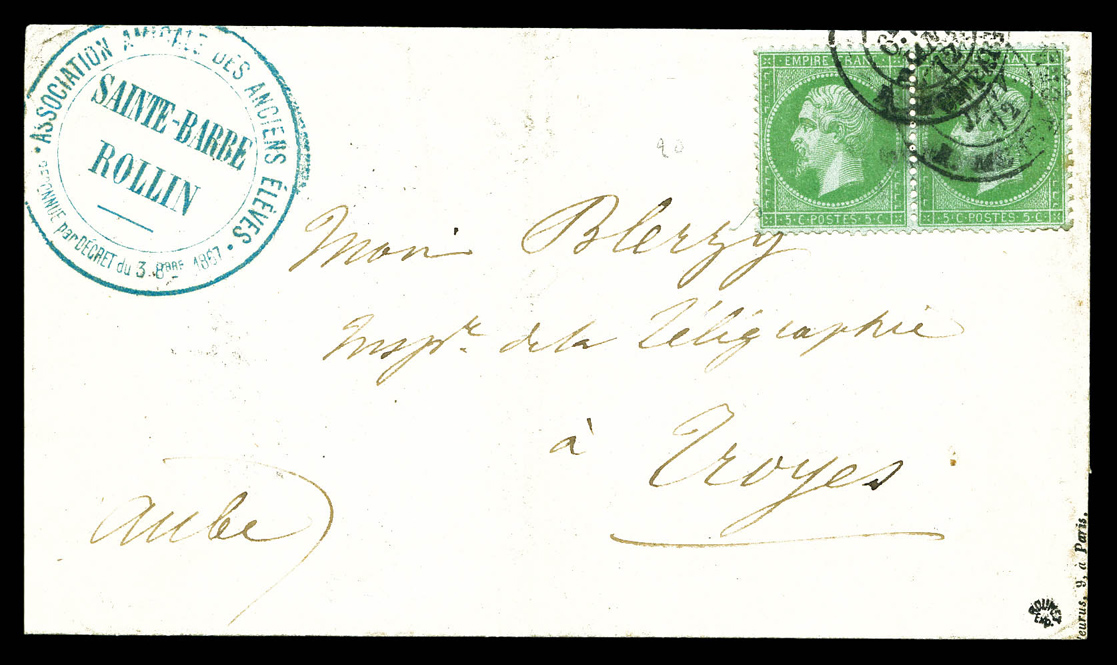 ASSOCIATION AMICALE DES ANCIENS ÉLÈVES
SAINTE-BARBE
ROLLIN
par DÉCRET du 3 8BRE 1867
EMPIRE FRANC
5·C·POSTES·5·C
5·C·POSTES·5·C
20
Blerzy
Inspr. de la Télégraphie
à Troyes
Aube
9, à Paris.